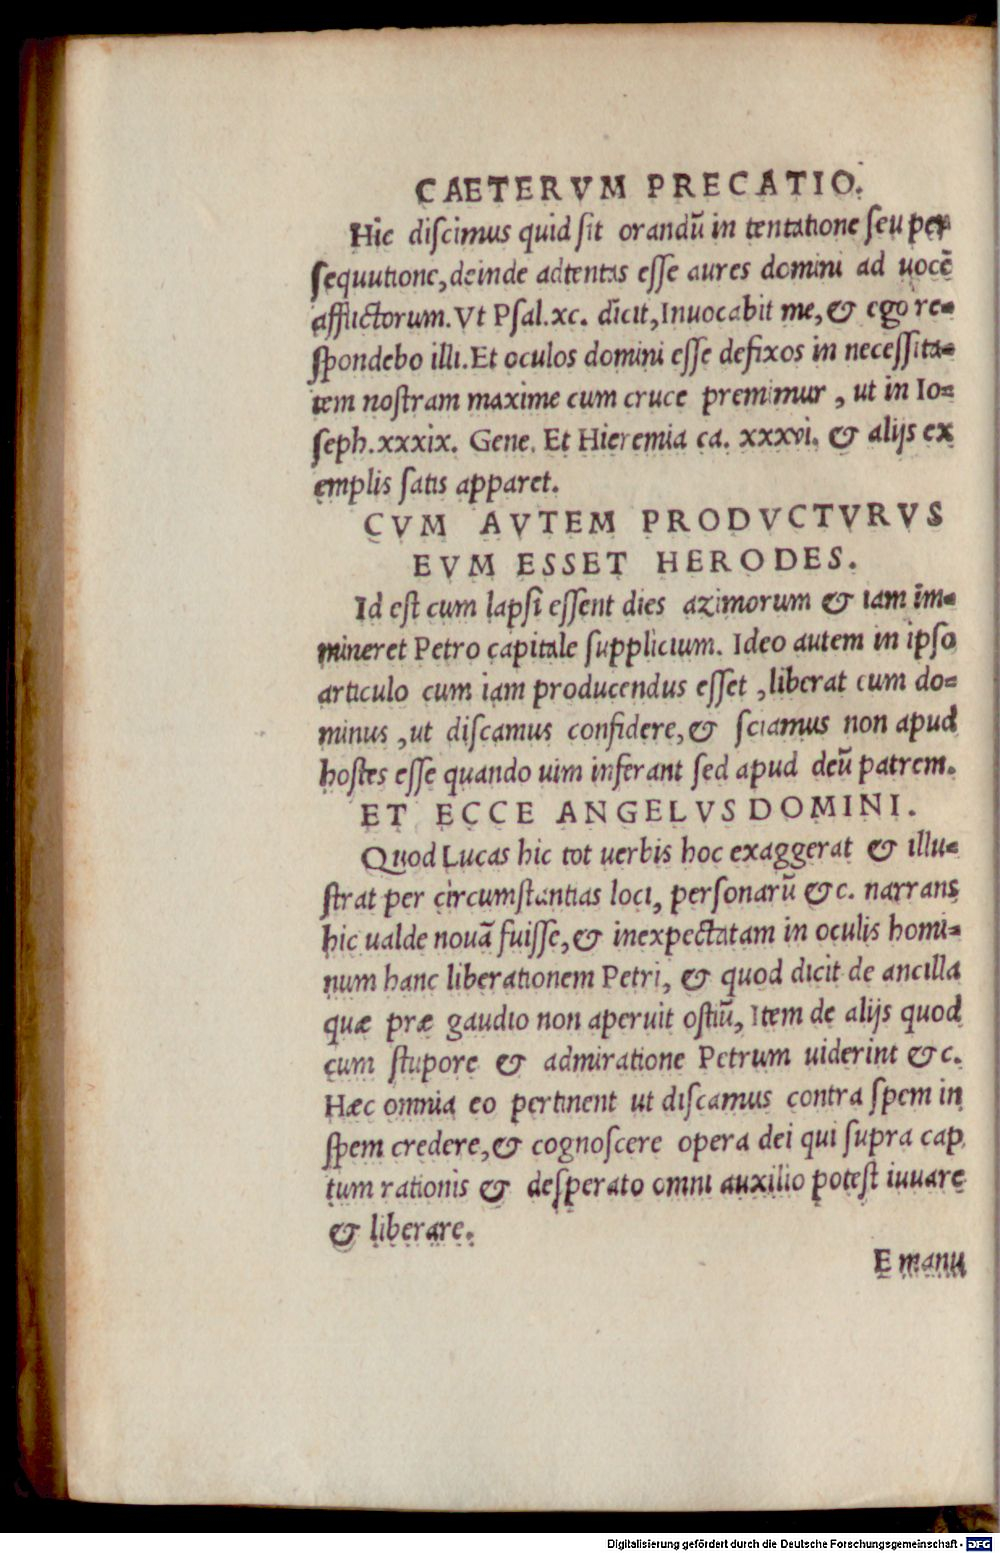 CAETERVM PRECATIO.
Hic discimus quid sit orandū in tentatione seu per
sequutione, deinde adtentas esse aures domini ad uocē
afflictorum. Vt Psal. xc. dicit, Inuocabit me, & ego re=
spondebo illi. Et oculos domini esse defixos in necessita=
tem nostram maxime cum cruce premimur, ut in Io=
seph. xxxix. Gene. Et Hieremia ca. xxxvi. & alijs ex
emplis satis apparet.
CVM AVTEM PRODVCTVRVS
EVM ESSET HERODES.
Id est cum lapsi essent dies azimorum & iam im=
mineret Petro capitale supplicium. Ideo autem in ipso
articulo cum iam producendus esset, liberat eum do=
minus, ut discamus confidere, & sciamus non apud
hostes esse quando uim inferant sed apud deū patrem.
ET ECCE ANGELVS DOMINI.
Quod Lucas hic tot uerbis hoc exaggerat & illu=
strat per circumstantias loci, personarū &c. narrans
hic ualde nouā fuisse, & inexpectatam in oculis homi=
num hanc liberationem Petri, & quod dicit de ancilla
quæ præ gaudio non aperuit ostiū, Item de alijs quod
cum stupore & admiratione Petrum uiderint &c.
Hæc omnia eo pertinent ut discamus contra spem in
spem credere, & cognoscere opera dei qui supra cap
tum rationis & desperato omni auxilio potest iuuare
& liberare.
E manu
Digitalisierung gefördert durch die Deutsche Forschungsgemeinschaft - DFG